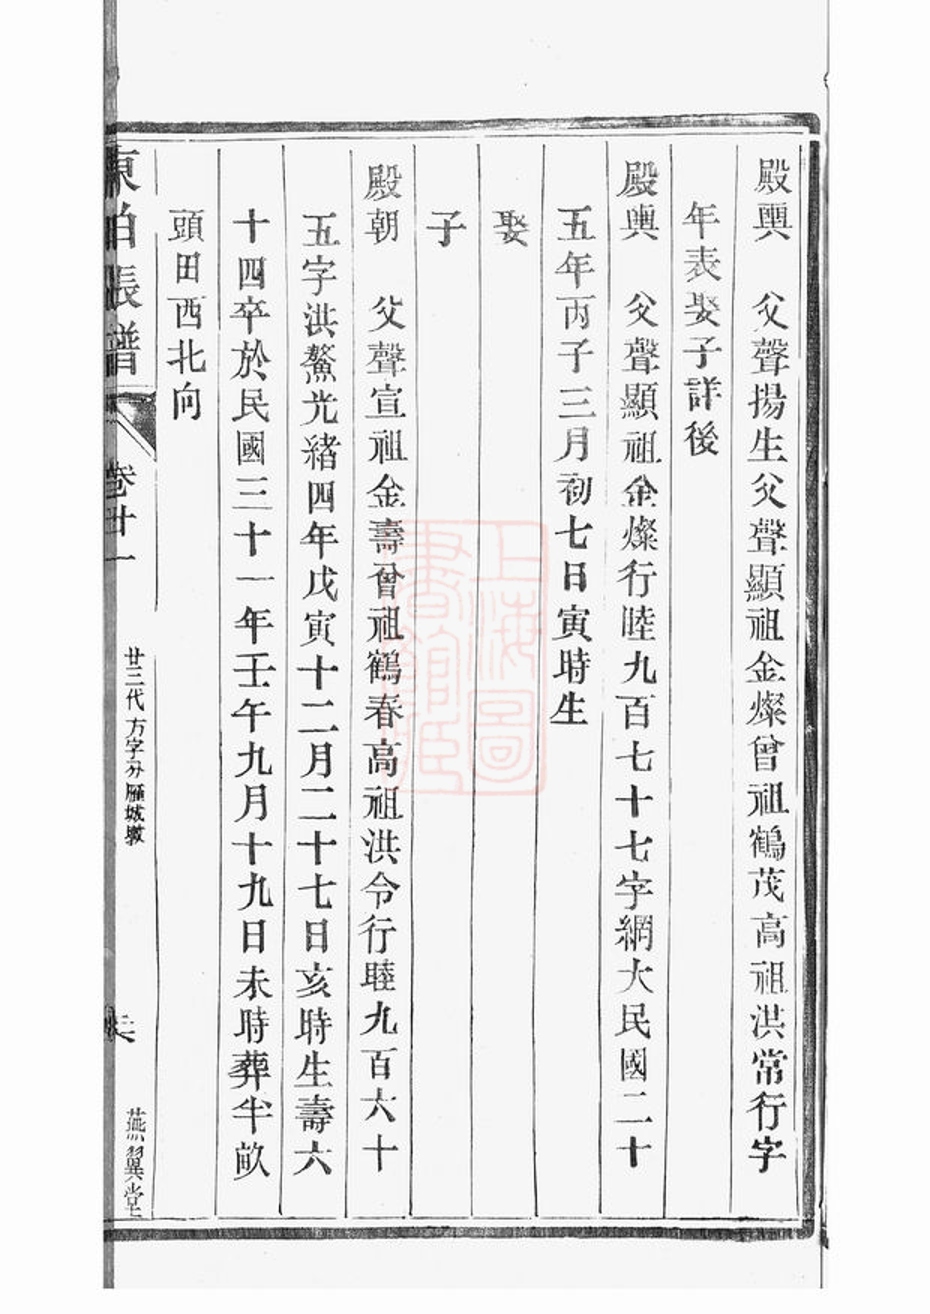 殿興　父聲揚生父聲顯祖金燦曾祖鶴茂高祖洪常行字
年表娶子詳後
殿輿　父聲顯祖金燦行睦九百七十七字網大民國二十
五年丙子三月初七日寅時生
娶
子
殿朝　父聲宣祖金壽曾祖鶴春高祖洪令行睦九百六十
五字洪鰲光緒四年戊寅十二月二十七日亥時生壽六
十四卒於民國三十一年壬午九月十九日未時葬半畝
頭田西北向
張譜　卷廿一　廿三代方字分雁城墩　燕翼堂
上海圖書館藏